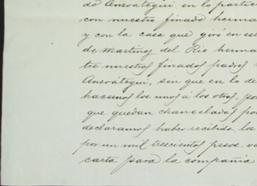 do Ansoátegui en la parti
con nuestro finado herma
y con la casa que giró en est
de Martinez del Rio herma
tre nuestros finados padres
Ansoátegui, sin que en lo de
hacernos los unos á los otros, po
que quedan chancelados po
declaramos haber recibido la
por un mil trescientos pesos va
carta para la compañía